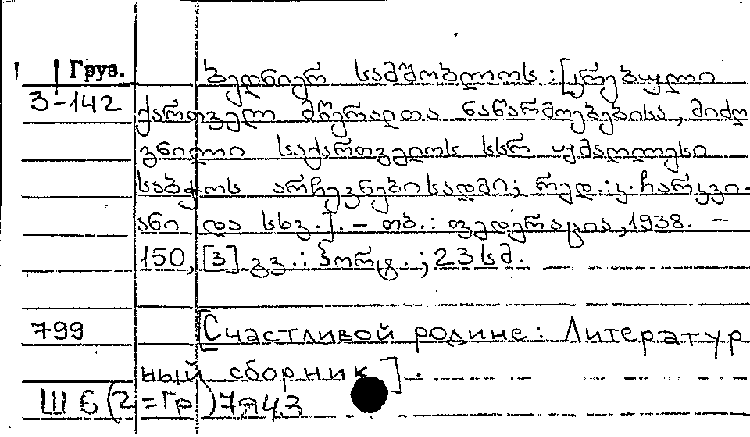 Груз. ბედნიერ სამშობლოს : [კრებული
3-142 ქართველ მწერალთა ნაწარმოებებისა, მიძღ
ვნილი საქართველოს სსრ უმაღლესი
საბჭოს არჩევნებისადმი; რედ.: კ. ჩარკვი-
ანი და სხვ.]. – თბ.: ფედერაცია, 1938. –
150, [3] გვ. : პორტ. ; 23 სმ.
799 [Счастливой родине: Литератур
ный сборник].
Ш 6(2=Гр)7я43